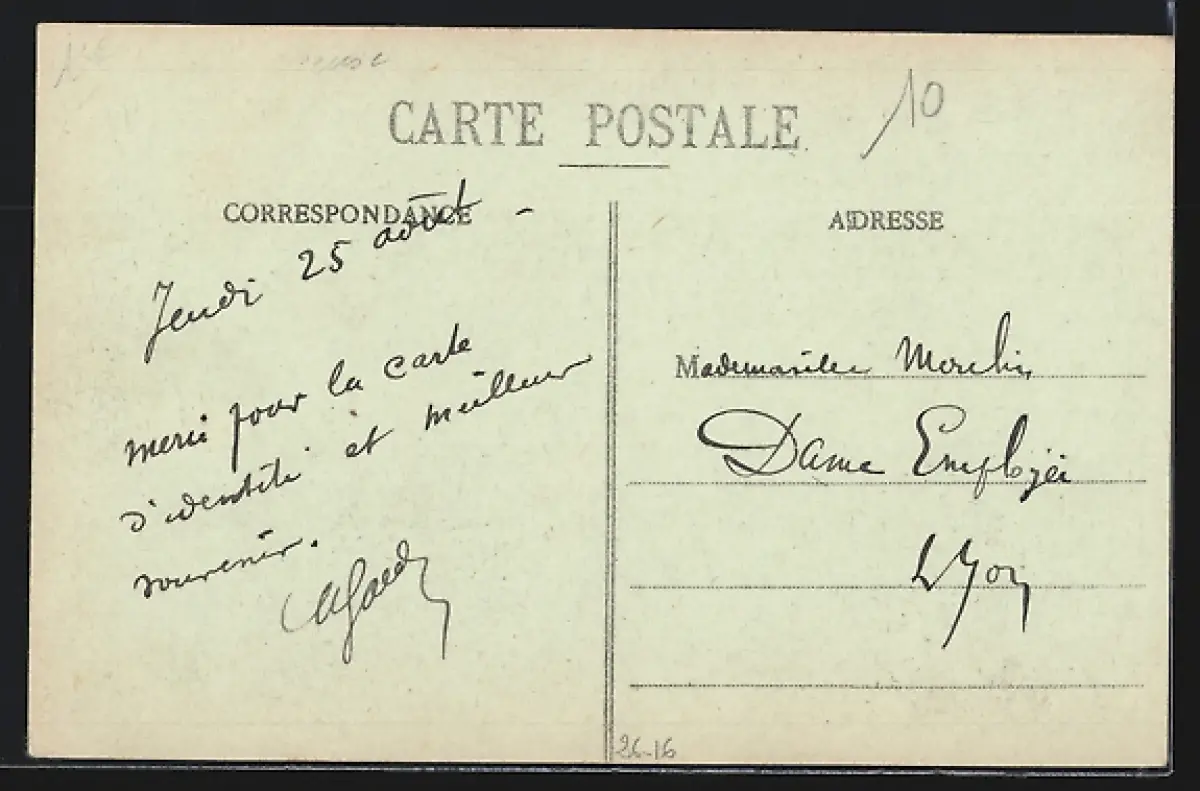 10
CARTE POSTALE
CORRESPONDANCE
Jeudi 25 août -
merci pour la carte
d'identité et meilleur
souvenir.
ADRESSE
Mademoiselle
Dame Employée
Lyon
26-16